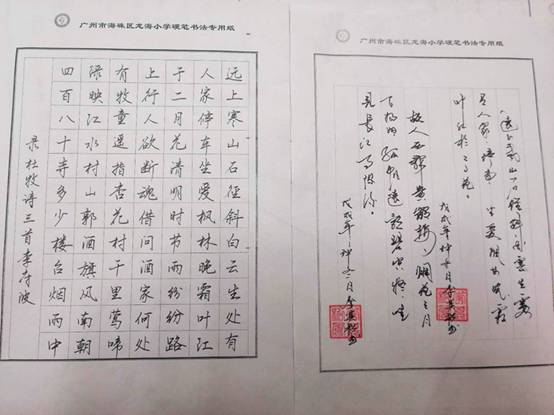 广州市海珠区龙海小学硬笔书法专用纸
远上寒山石径斜白云生处有
人家停车坐爱枫林晚霜叶红
于二月花清明时节雨纷纷路
上行人欲断魂借问酒家何处
有牧童遥指杏花村千里莺啼
绿映红水村山郭酒旗风南朝
四百八十寺多少楼台烟雨中
录杜牧诗三首李波
广州市海珠区龙海小学硬笔书法专用纸
远上寒山石径斜白云生处
有人家停车坐爱枫林晚霜
叶红于二月花
戊戌年仲月李书
故人西辞黄鹤楼烟花三月
下扬州孤帆远影碧空尽唯
见长江天际流
戊戌年仲月李书